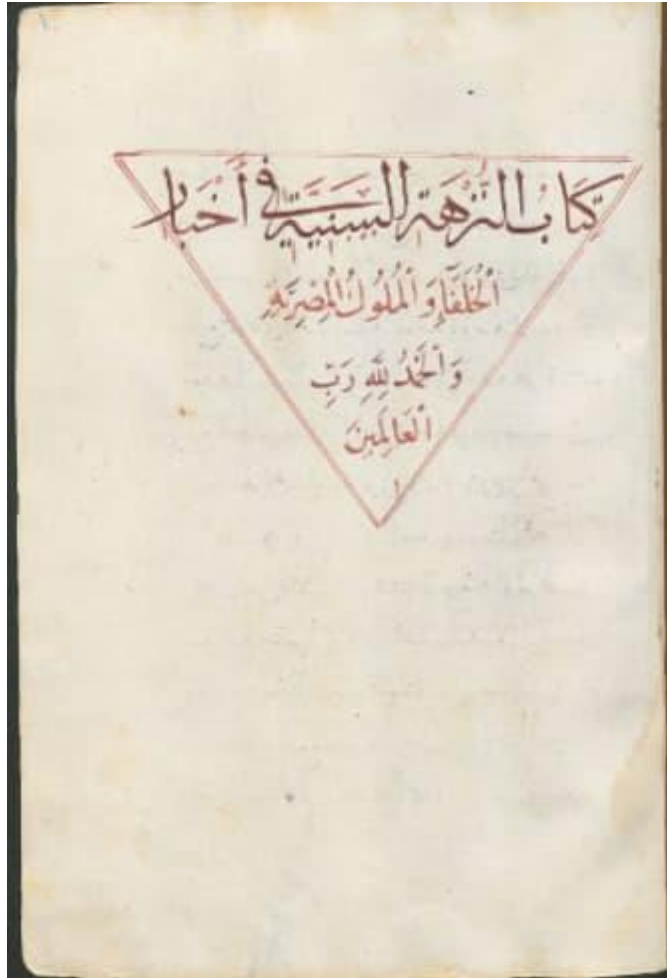 كتاب النزهة السنية في أخبار
الْخُلَفَاءِ وَالْمُلُوكِ الْمِصْرِيَّةِ
وَالْحَمْدُ لِلَّهِ رَبِّ
الْعَالَمِينَ